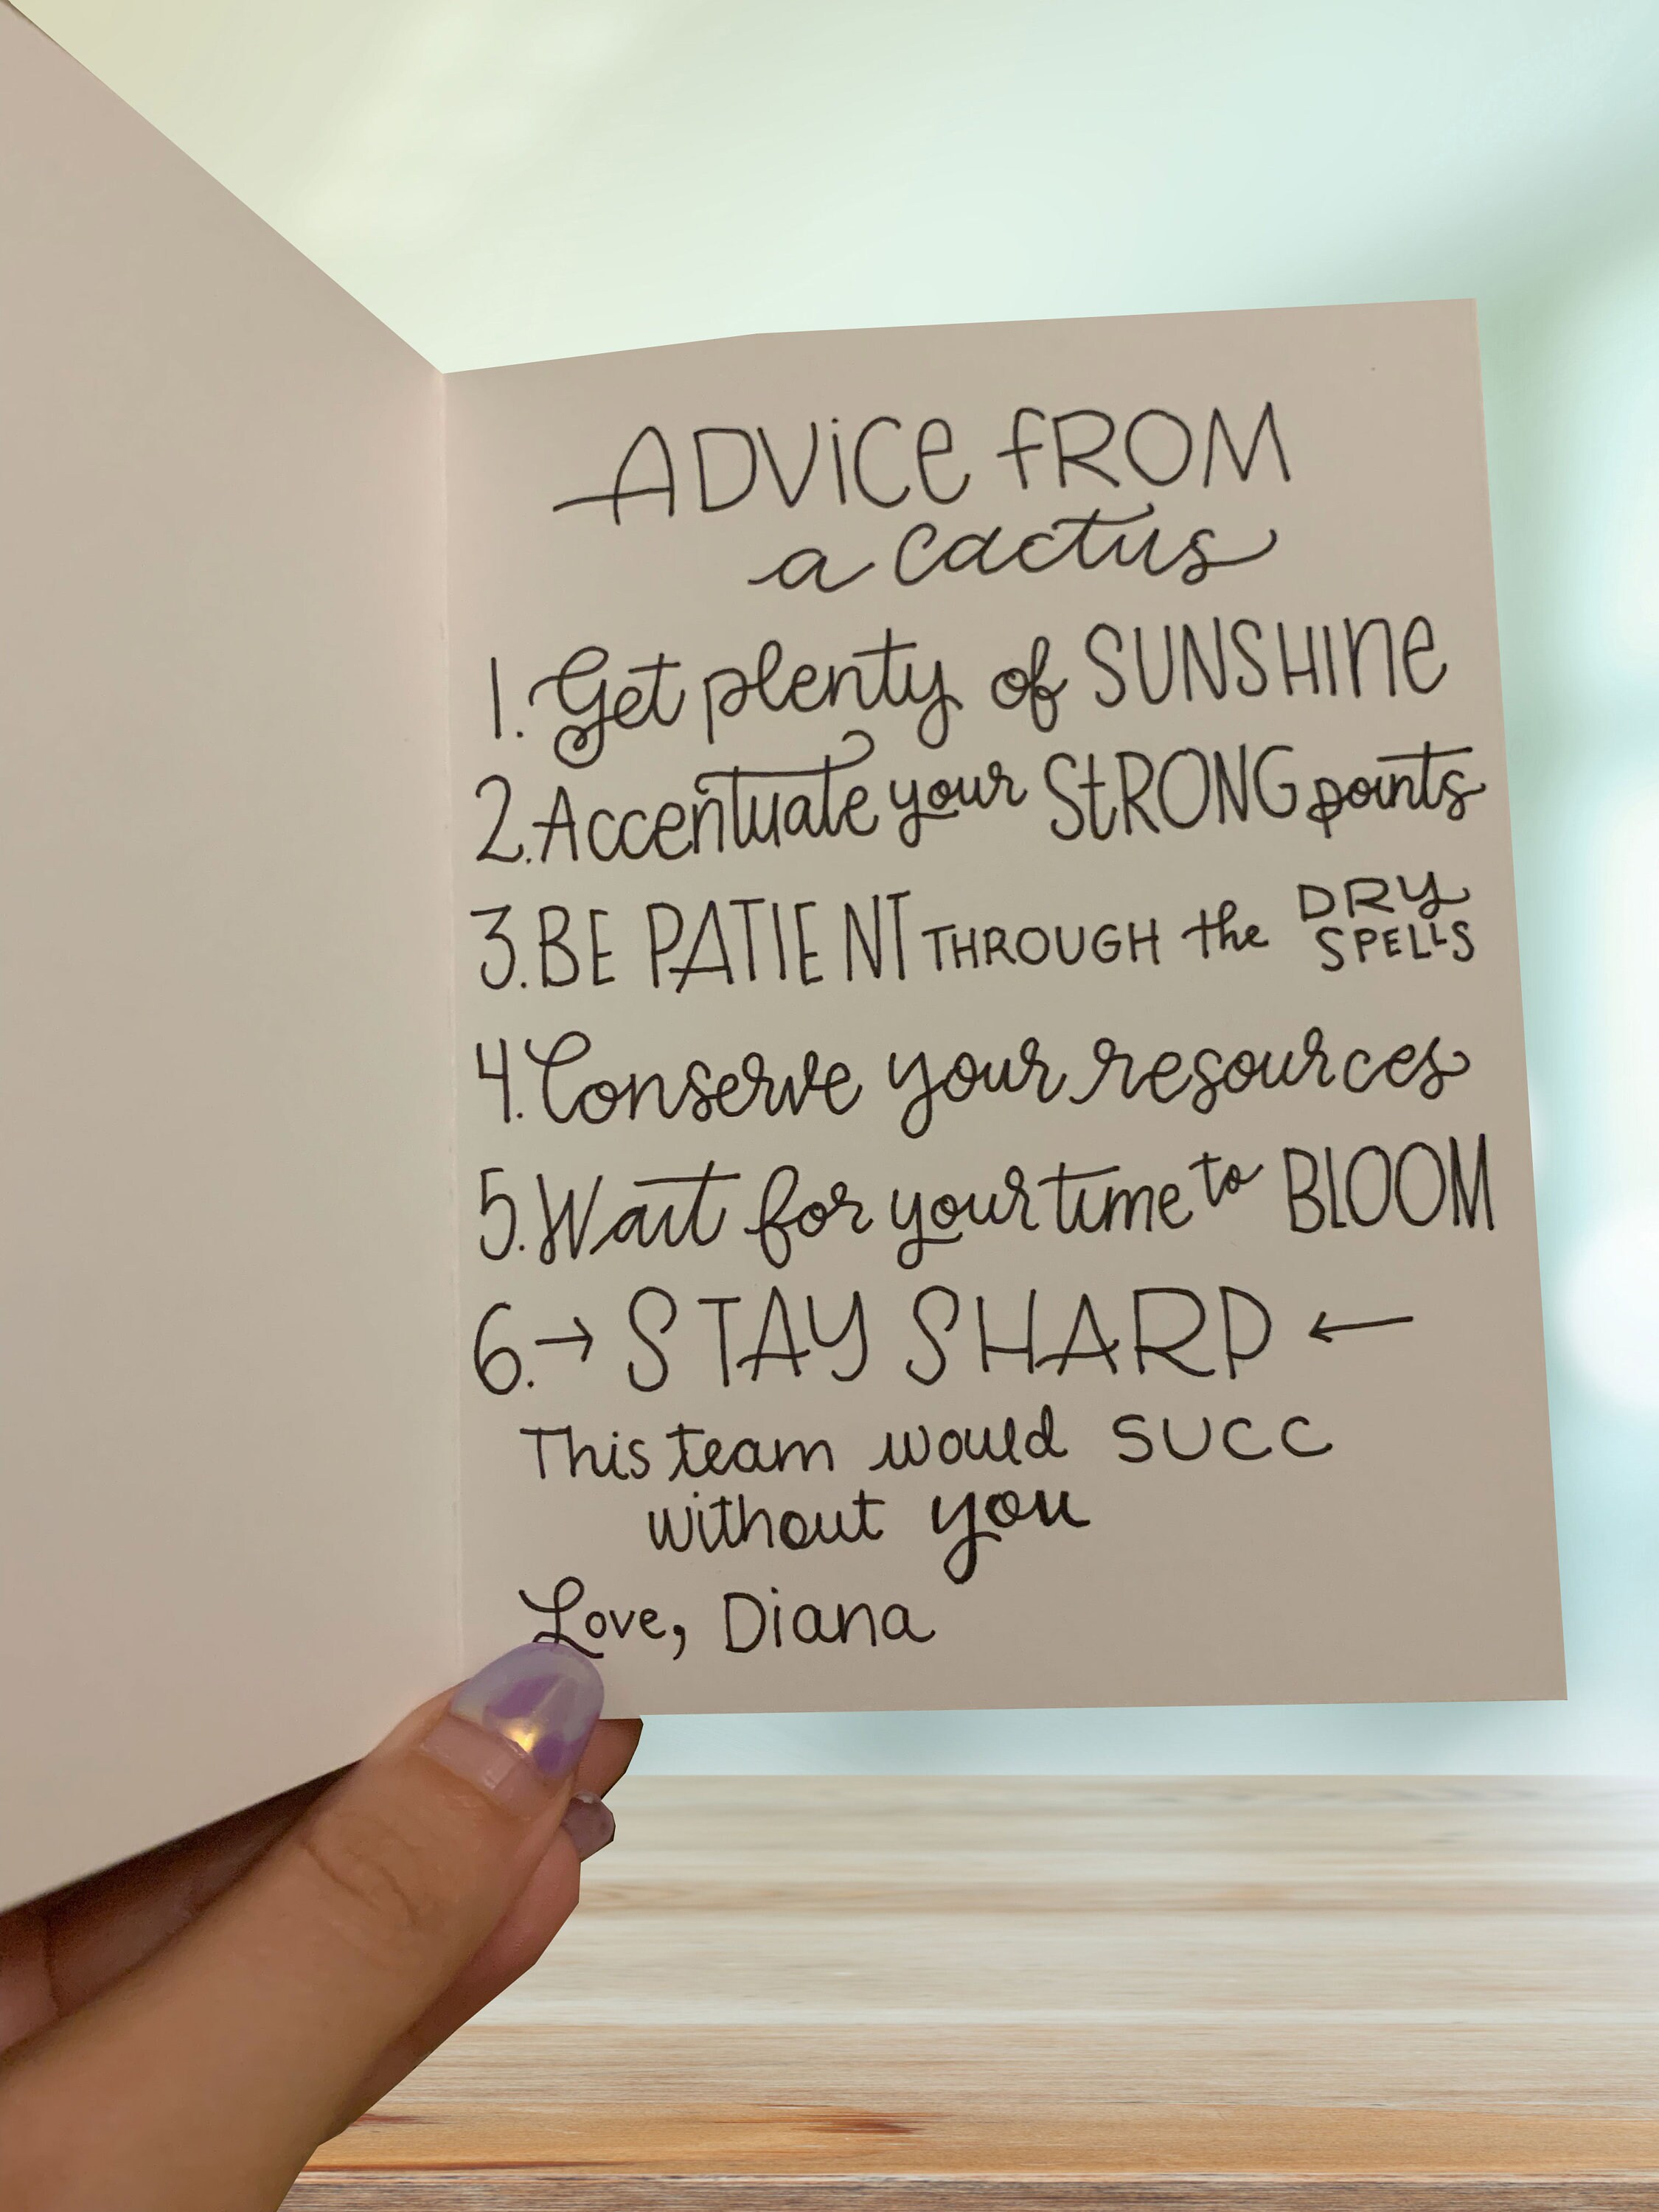 ADViCe fROM
a cactus
1. Get plenty of SUNSHINE
2. Accentuate your StRONG points
3. BE PATIENT THROUGH the DRY SPELLS
4. Conserve your resources
5. Wait for your time to BLOOM
6. → STAY SHARP ←
This team would SUCC
without you
Love, Diana